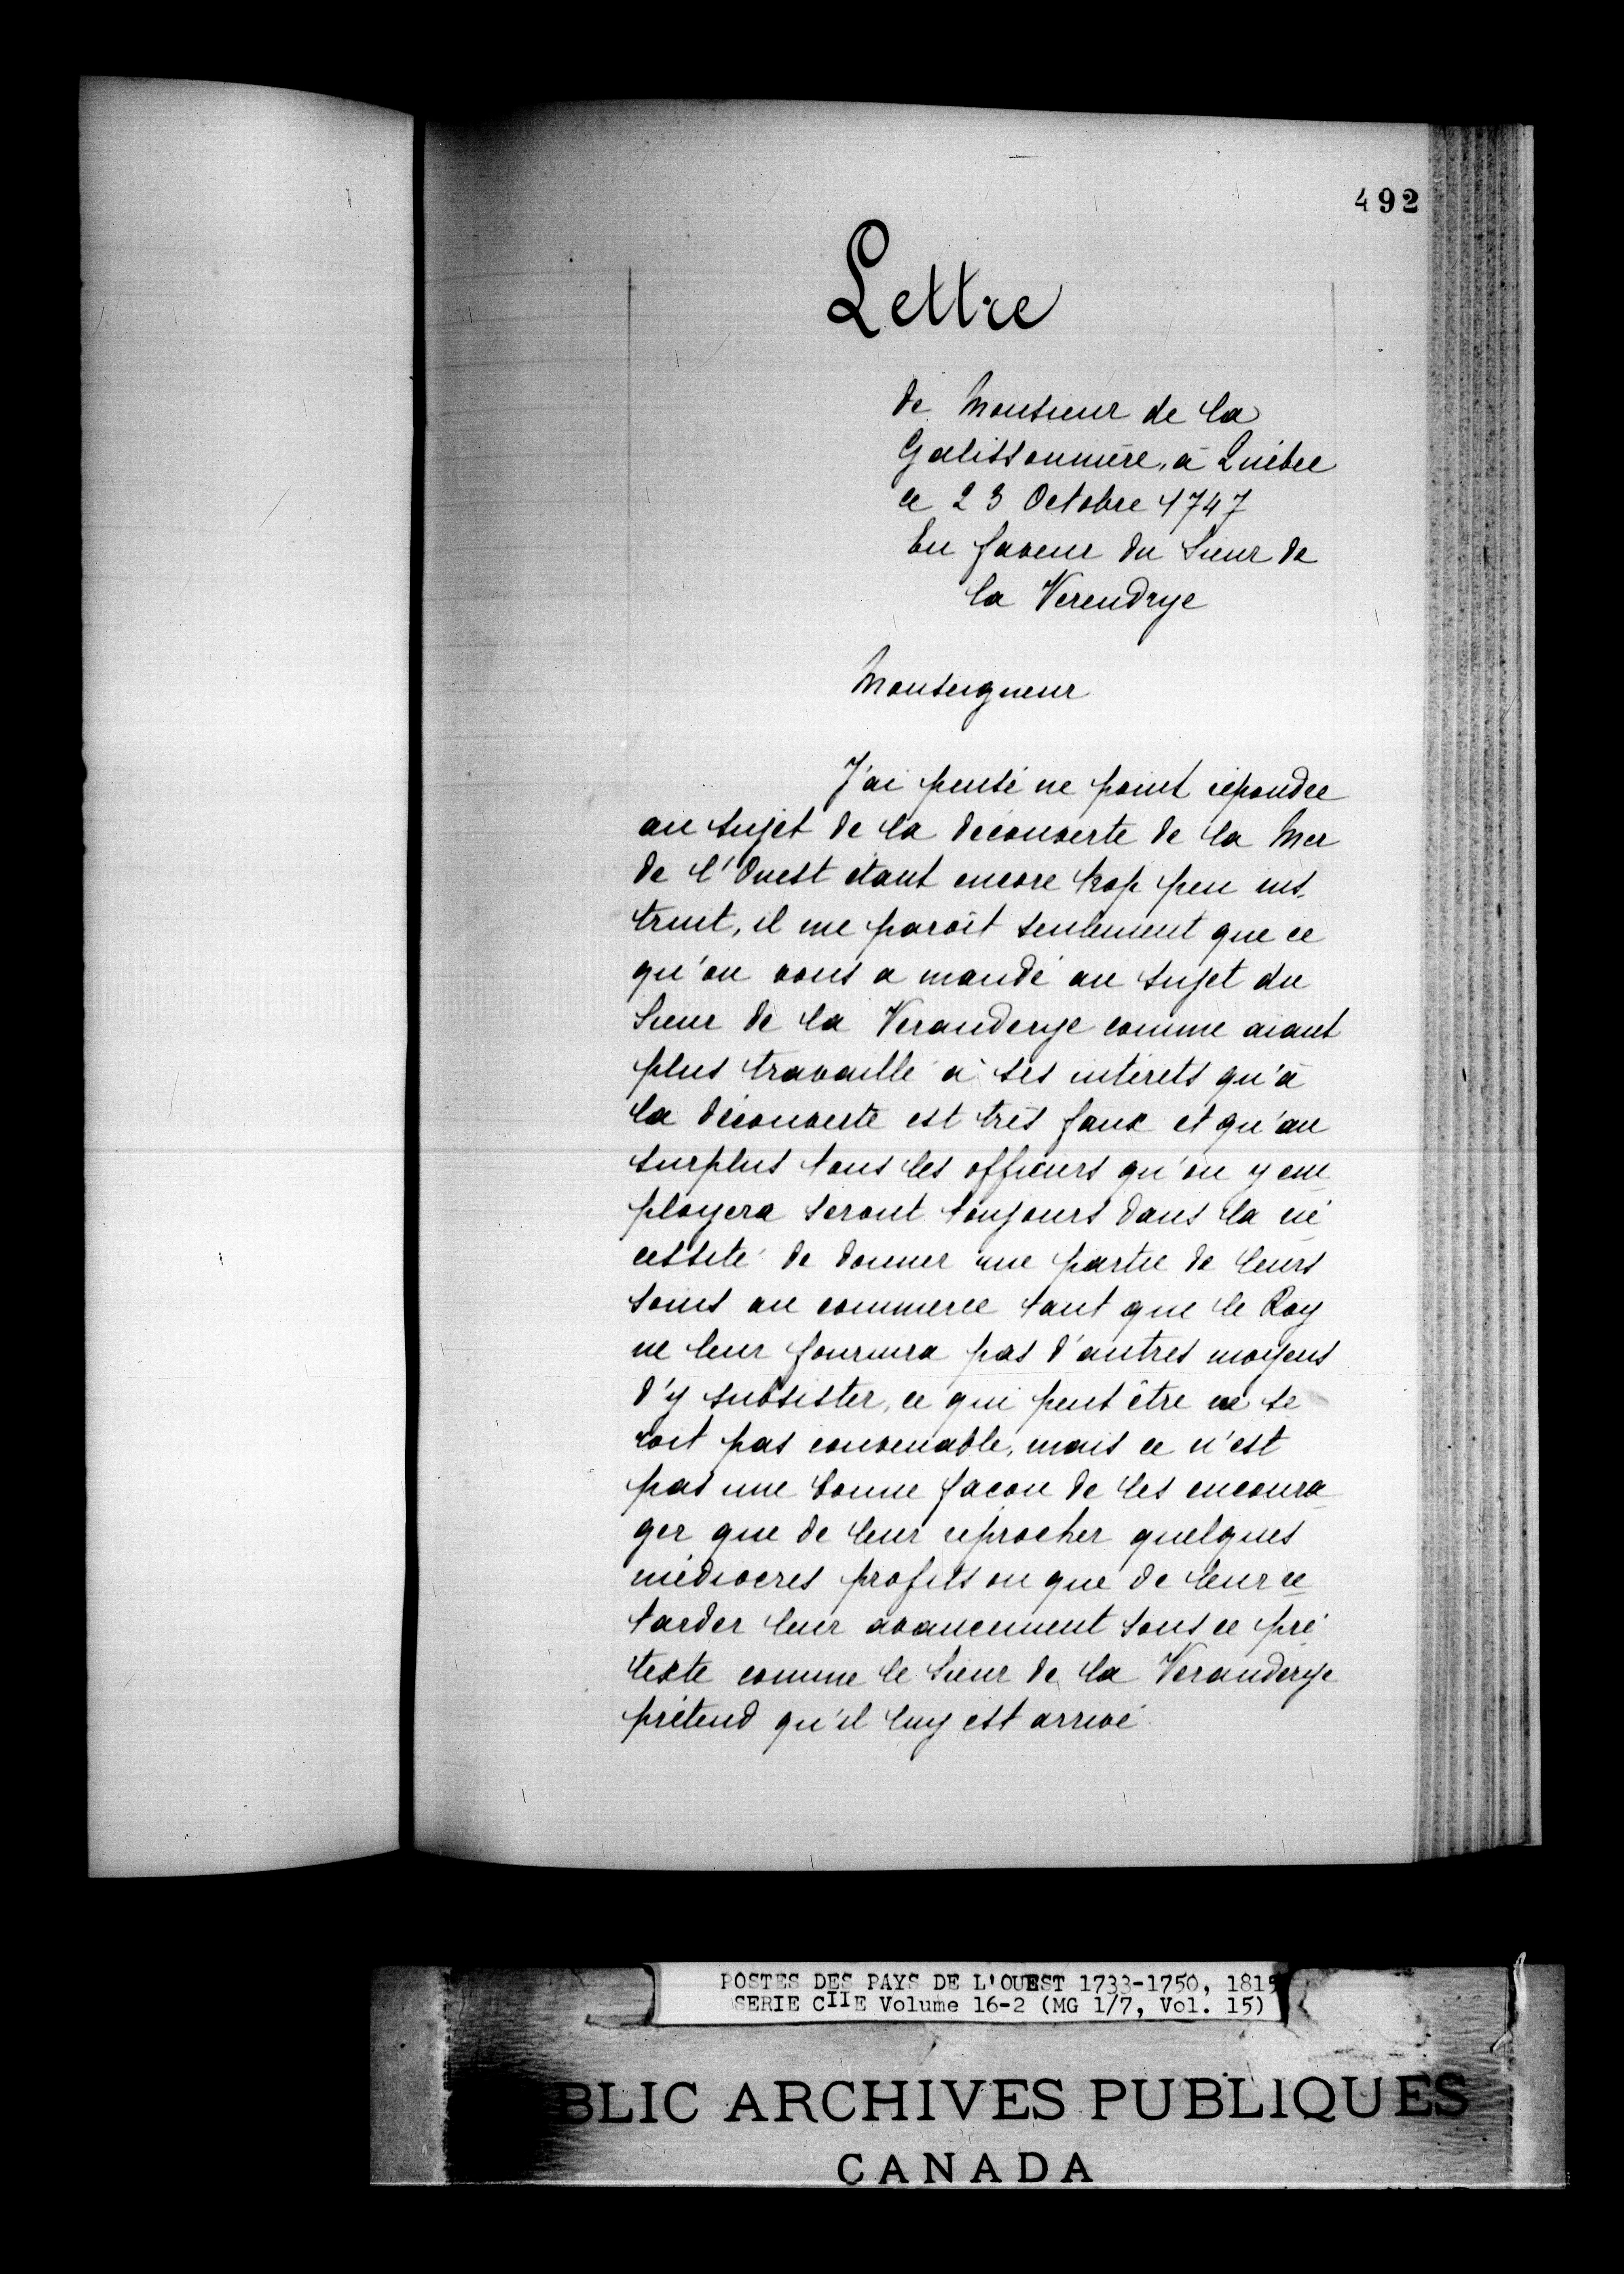 492
Lettre
de Monsieur de la
Galissonnière, à Québec
ce 23 Octobre 1747
En faveur du Sieur de
la Verendrye
Monseigneur
J'ai pensé ne point répondre
au sujet de la découverte de la Mer
de l'Ouest étant encore trop peu ins
truit, il me paroît seulement que ce
qu'on vous a mandé au sujet du
Sieur de la Veranderye comme aiant
plus travaillé à ses intérets qu'à
la découverte est très faux et qu'au
surplus tous les officiers qu'on y em
ployera seront toujours dans la né
cessité de donner une partie de leurs
soins au commerce tant que le Roy
ne leur fournira pas d'autres moyens
d'y subsister, ce qui peut être ne se
roit pas convenable, mais ce n'est
pas une bonne facon de les encoura
ger que de leur réprocher quelques
médiocres profits ou que de leur re
tarder leur avancement sous ce pré
texte comme le Sieur de la Veranderye
prétend qu'il luy est arrivé.
POSTES DES PAYS DE L'OUEST 1733-1750, 1815
SERIE CIIE Volume 16-2 (MG 1/7, Vol. 15)
BLIC ARCHIVES PUBLIQUES
CANADA